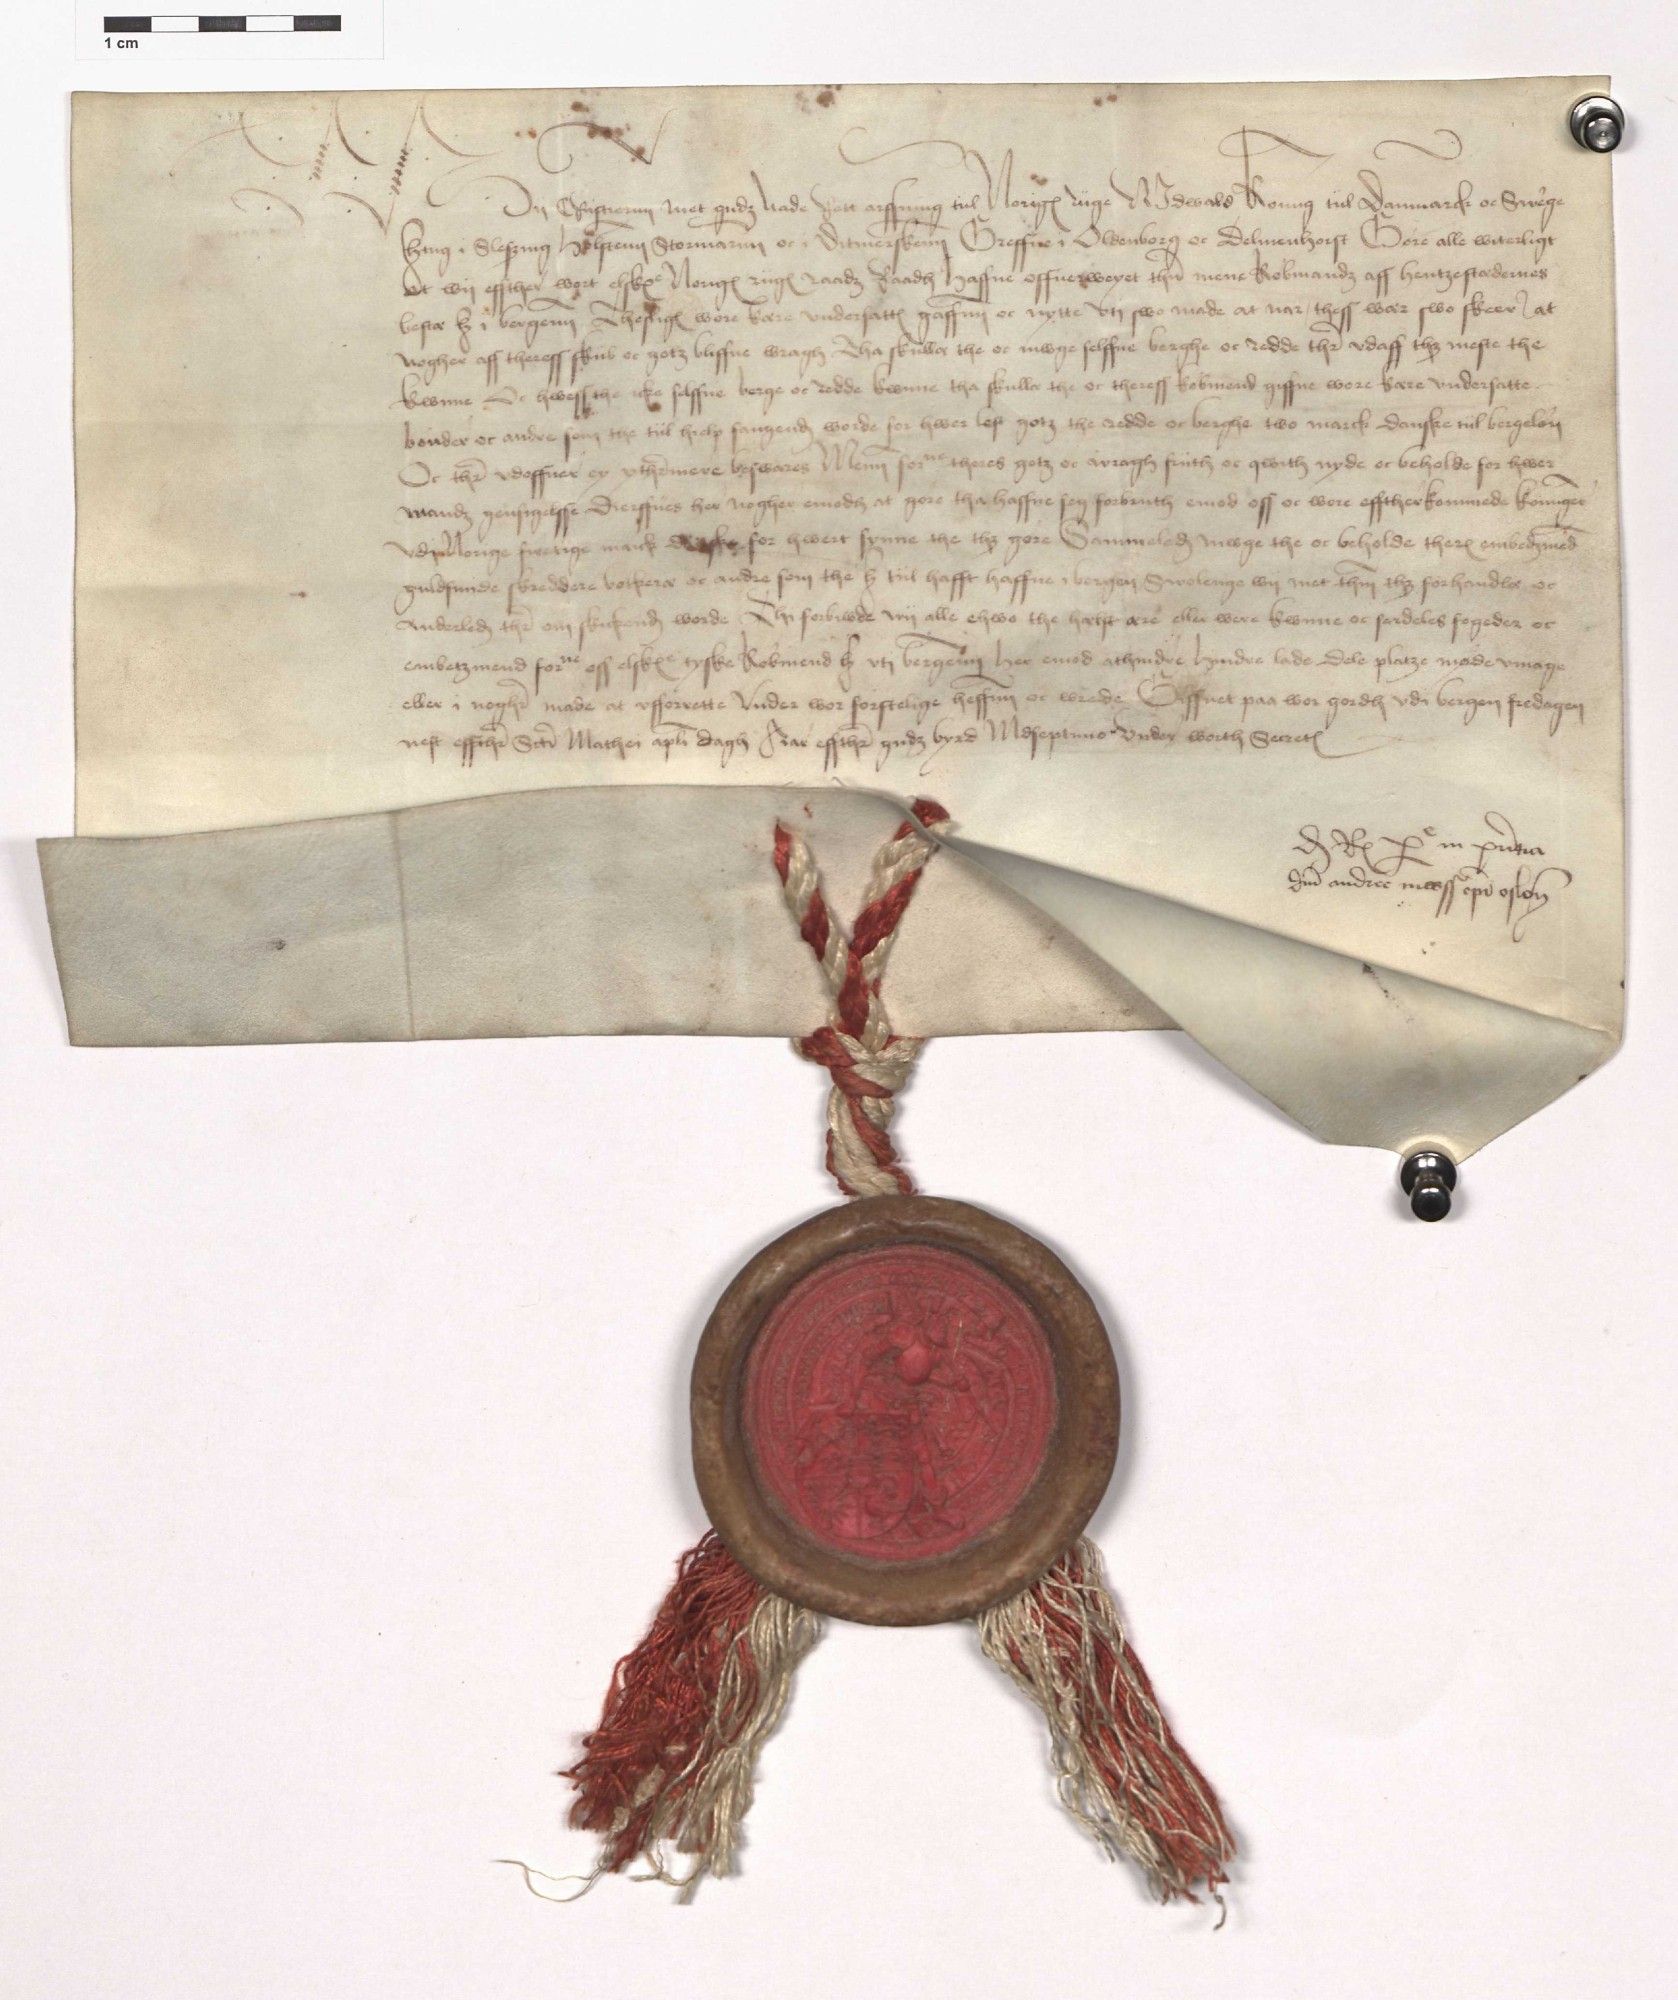 1 cm
Wij Cristiernn met gudz nade Rett arffuing tiil Norigs riige Wduald Konnig tiil Danmarck oc Swerge
Hertug i Sleszuig Holstenn Stormarnn oc i Ditmerskenn Greffue i Oldenborg oc Delmenhorst Göre alle witerligt
At wij effther wort elskes Norigs riigs raadz Raadh haffue offuerweyet thn mene Kobmandz aff hentzestædernes
beste h i bergenn Thesligs wore kære vndersatts gaffnn oc nytte vti swo made at nar thess war swo skeer at
nogher aff theress skiib oc gotz bliffue wragh Tha skulle the oc mwge selffue berghe oc redde ther vdaff thz meste the
kwnne Oc hwess the icke selffue berge oc redde kwnne tha skulle the oc theress kobmend giffue wore kære vndersatte
bönder oc andre som the tiil hielp fangendes worde for hwer lest gotz the redde oc berghe two marck danske tiil bergelön
Oc ther vdoffuer ey ythermere beswares Menn forne theres gotz oc wragh friith oc qwith nyde oc beholde for hwer
mandz gensigelsse Dierffues her nogher emodh at göre tha haffue seg forbruth emod oss oc wore efftherkommede koninger
vdi Norige firetige marck danske for hwert synne the thz göre Sammeledz mwge the oc beholde theres embedzmed
guldsmede skreddere botkere oc andre som the h tiil hafft haffue i bergen Swolenge wij met thm thz forhandle oc
anderledz ther om skickendes worde Thi forbiwde wij alle ehwo the helst ære eller were kwnne oc serdeles fogeder oc
embetzmend forne oss elskes tyske Kobmend h vti bergenn her emod athindre hindre lade dele platze möde vmage
eller i nogher made at vforrette Vnder wor forstelige heffnn oc wrede Giffuet paa wor gordh vdi bergen fredagen
nest effther Scti Mathei apli dagh Aar effther gudz byrd Mdseptimo Vnder worth Secrets
D R per se in prntia
dni andree mwss epi oslon